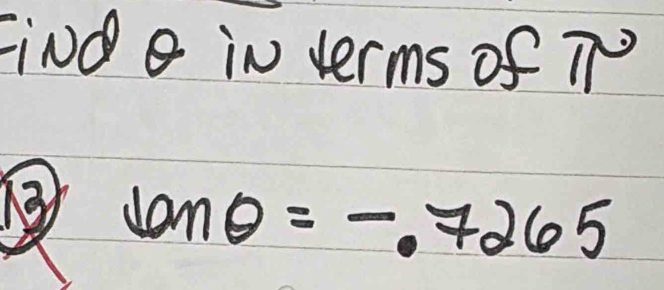 Find θ in terms of π
13 tan θ = -.7265